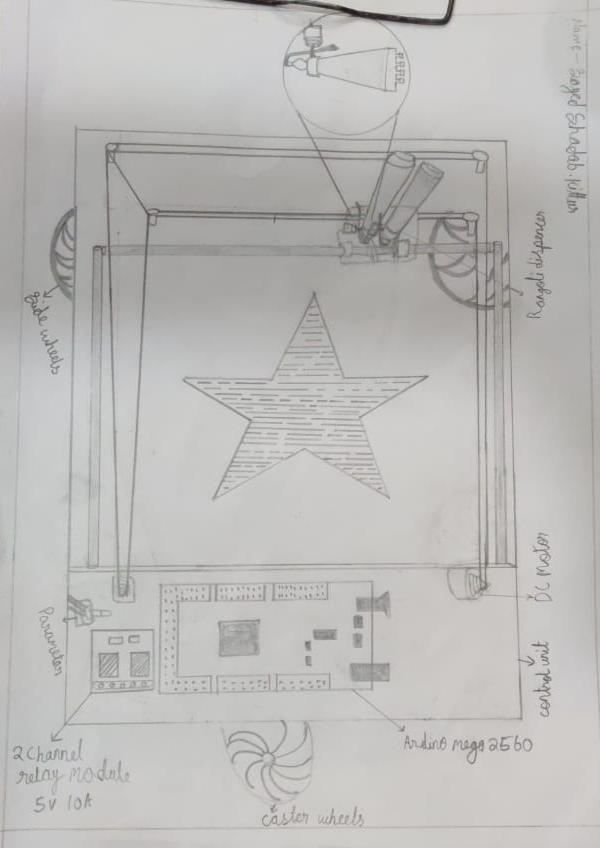 Name - Sayed Shadab.
Rangoli dispencer
Side wheels
DC Motor
control unit
2 Channel
relay Module
5V 10A
Ardino mega 2560
caster wheels